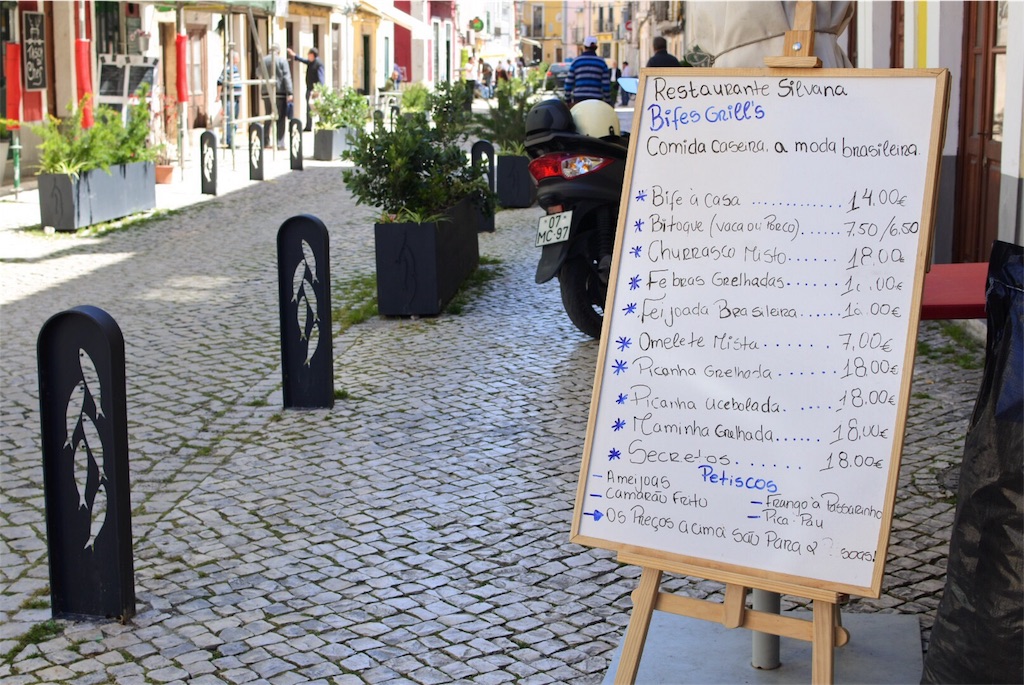 Restaurante Silvana
Bifes Grill's
Comida caseira. a moda brasileira.
* Bife à casa ............. 14.00€
* Bitoque (vaca ou Porco)...... 7.50/6.50
* Churrasco Misto...... 18.00€
* Febras Grelhadas......
* Feijoada Brasileira......
* Omelete Mista ...... 7,00€
* Picanha Grelhada ...... 18.00€
* Picanha acebolada. ..... 18.00€
* Maminha Grelhada...... 18,00€
* Secretos....... 18.00€
Petiscos
- Ameijoas
- Camarão Frito
- Frango à Passarinho
- Pica-Pau
→ Os Preços acima são Para 2 soas!
07
MC 97